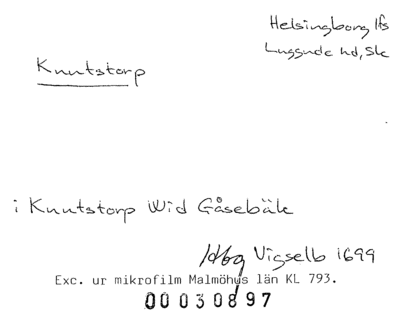 Helsingborg lfs
Luggude hd, Sk
Knutstorp
i Knutstorp Wid Gåsebäk
Hbg Vigselb 1699
Exc. ur mikrofilm Malmöhus län KL 793.
00030897